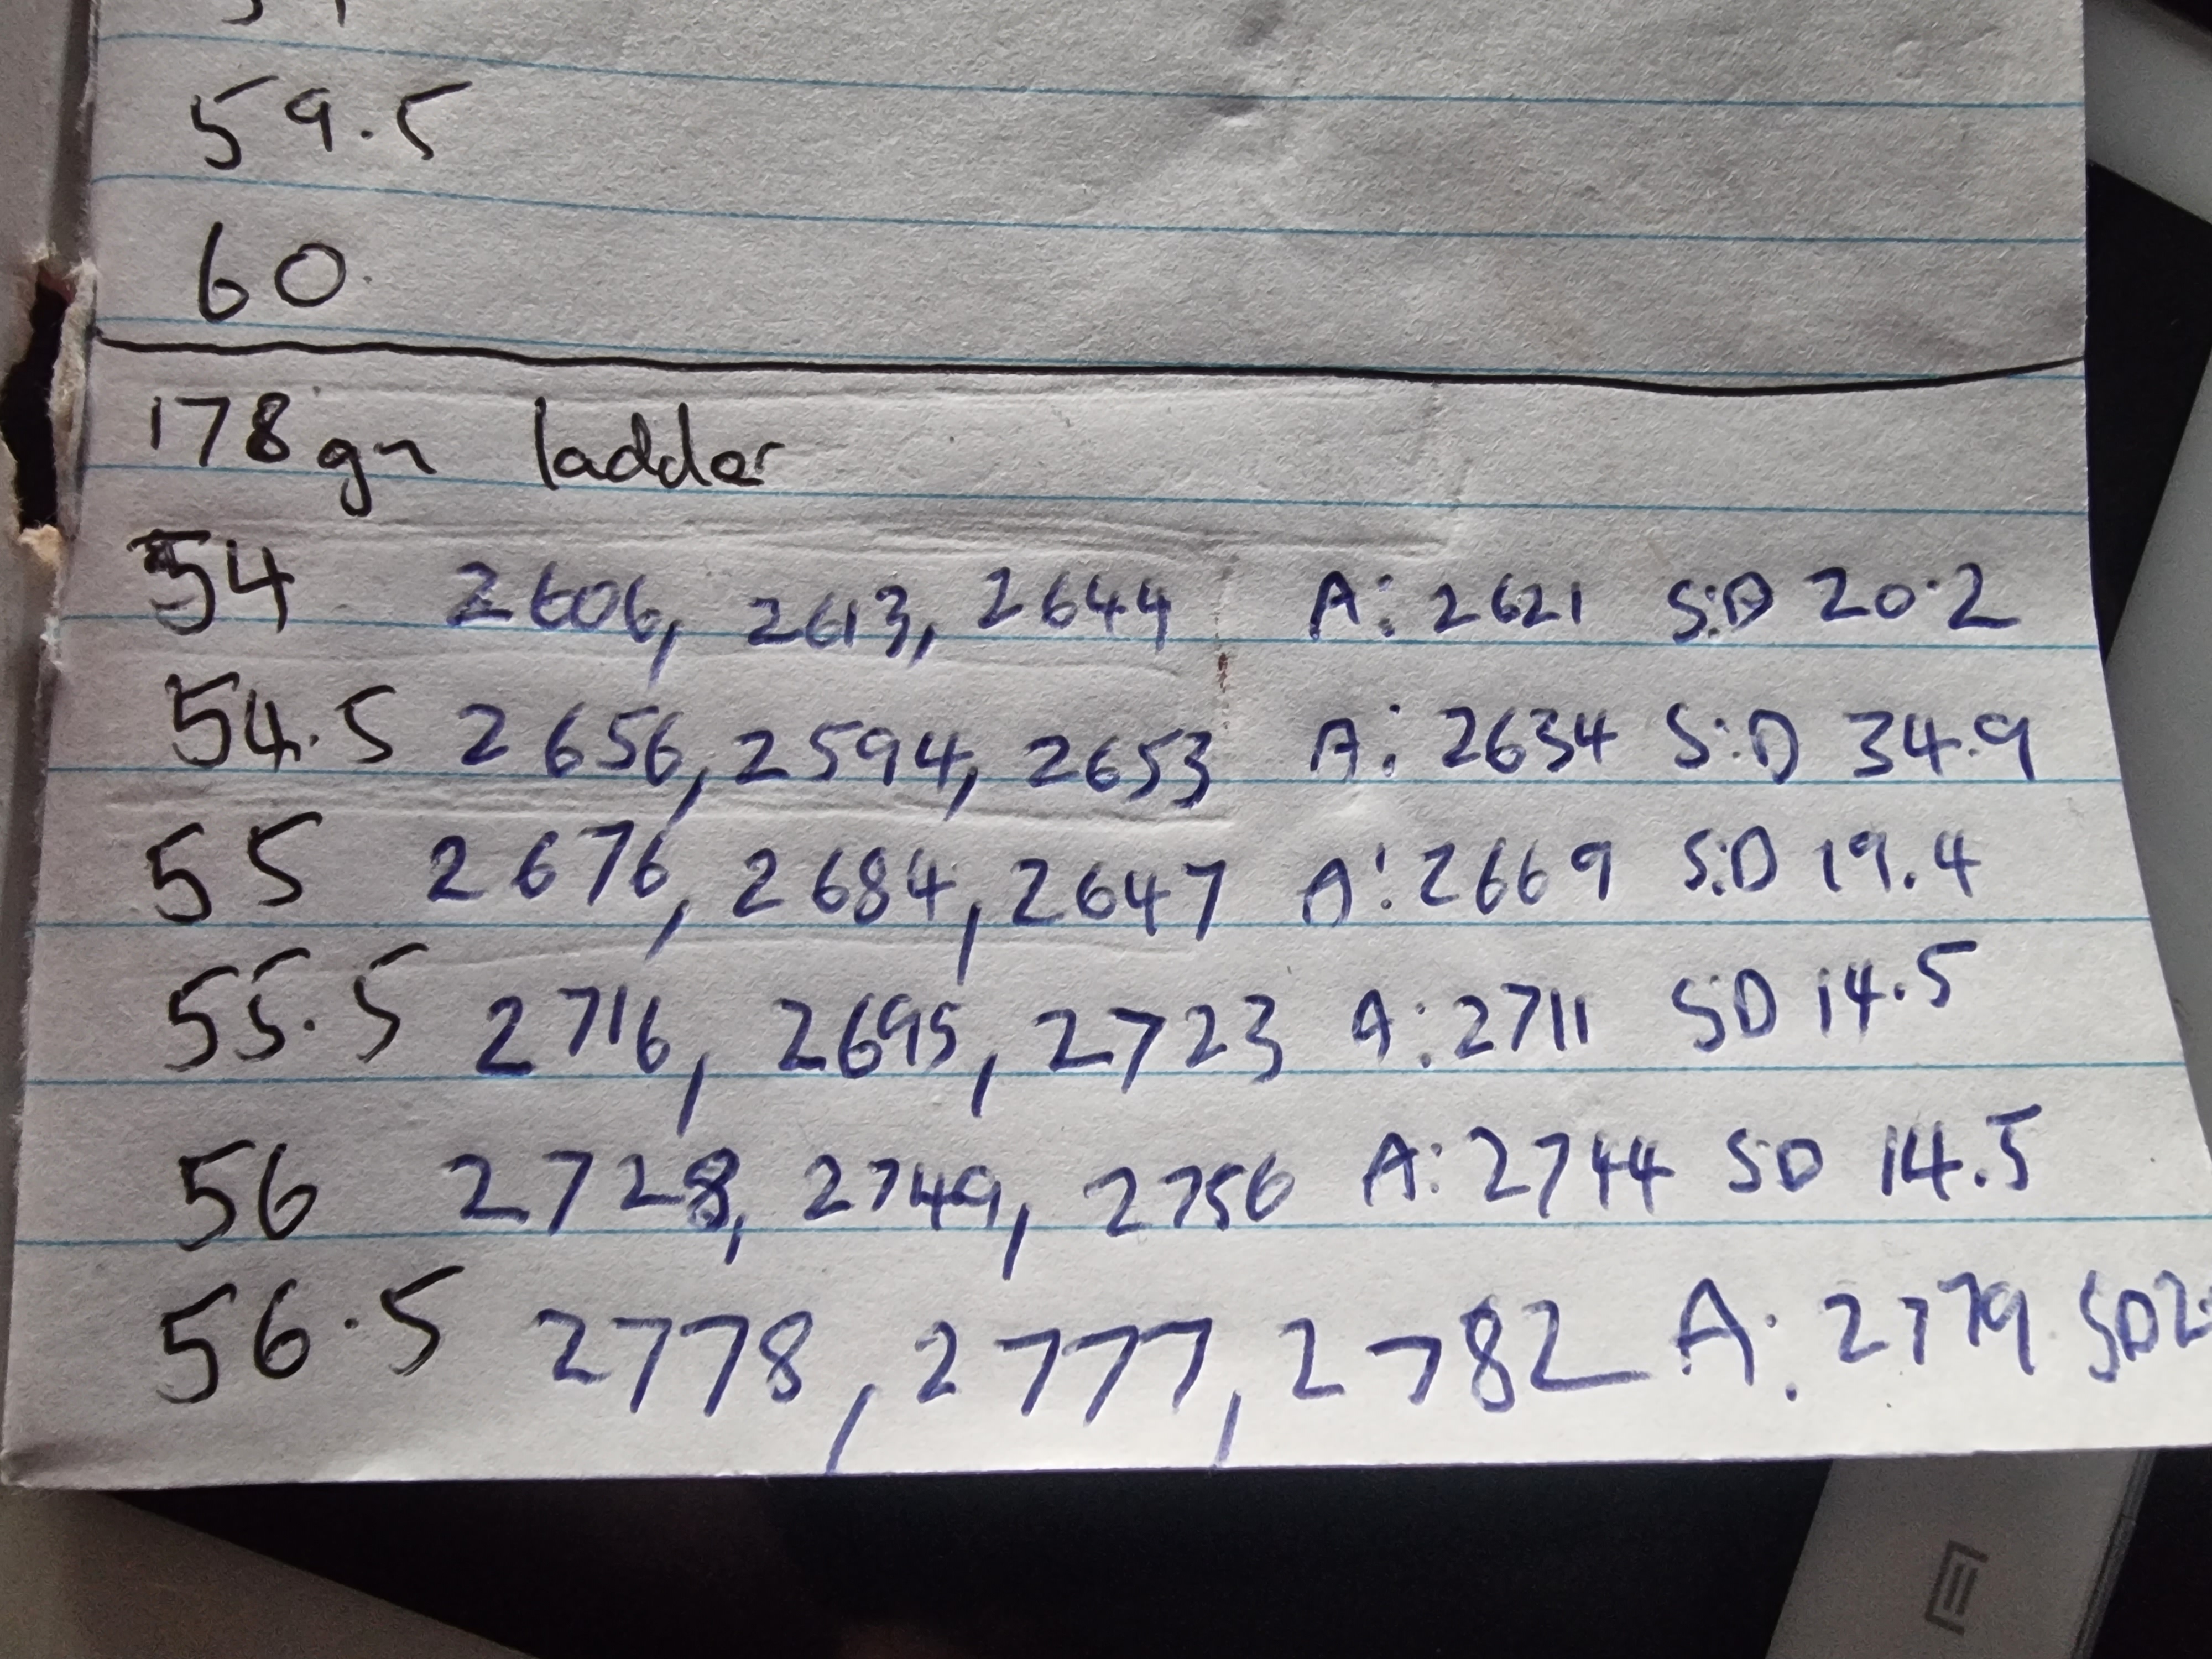 59.5
60
178gn ladder
54 2606, 2613, 2644 A: 2621 S:D 20.2
54.5 2656, 2594, 2653 A: 2634 S:D 34.9
55 2676, 2684, 2647 A: 2669 S:D 19.4
55.5 2716, 2695, 2723 A: 2711 SD 14.5
56 2728, 2749, 2756 A: 2744 SD 14.5
56.5 2778, 2777, 2782 A: 2779 SD 2.